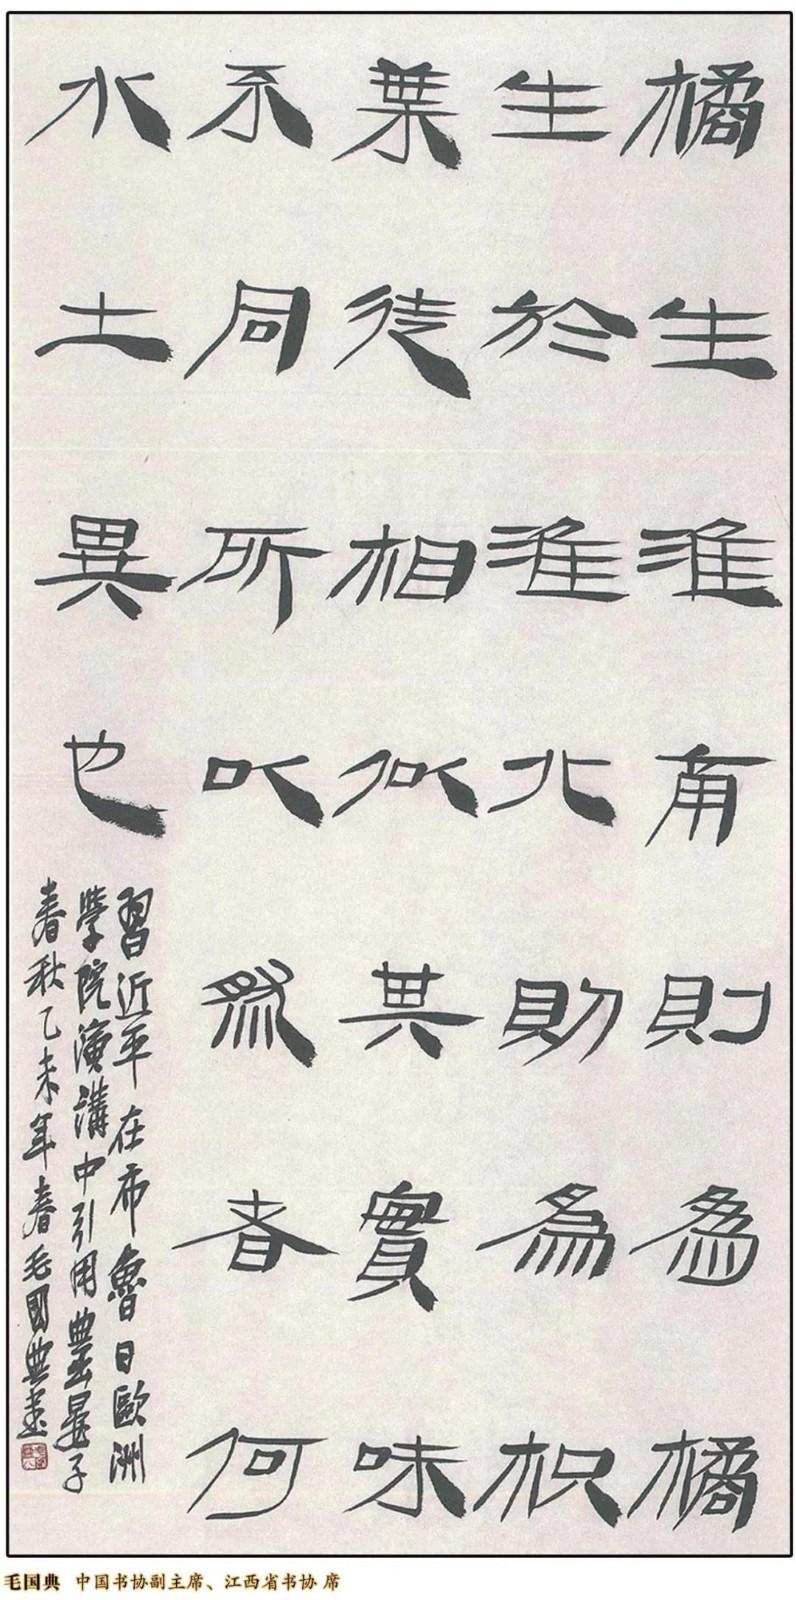 橘生淮南則爲橘
生於淮北則爲枳
葉徒相似其實味
不同所以然者何
水土異也
習近平在布魯日歐洲
學院演講中引用典晏子
春秋乙未年春毛國典書
毛国典 中国书协副主席、江西省书协 席